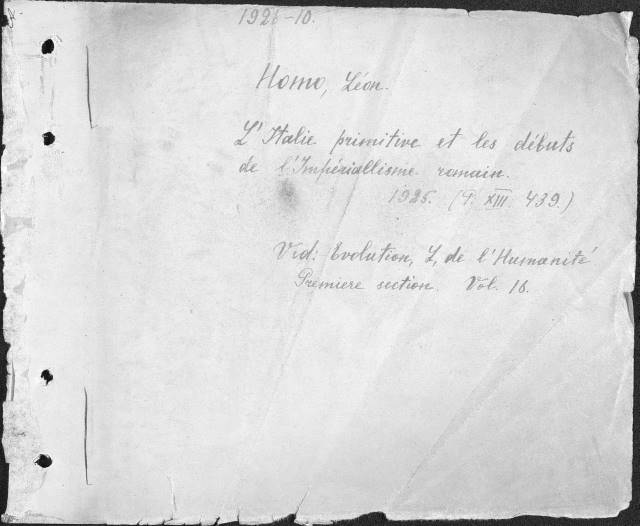 1926-10.
Homo, Léon.
L'Italie primitive et les débuts
de l'Impériallisme romain.
1925. (P. XIII. 439.)
Vid: Evolution, L, de l'Humanité
Premiere section. Vol. 16.